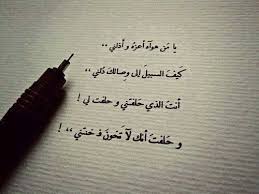 يا مَن هواه أعزه و أذلني ..
كَيفَ السبيلَ إلى وِصالك دُلني ..
أنتَ الذي حَلفتني و حلفت لي !
و حَلفتَ أنكَ لآ تَخونَ فـ خنتني ،، !